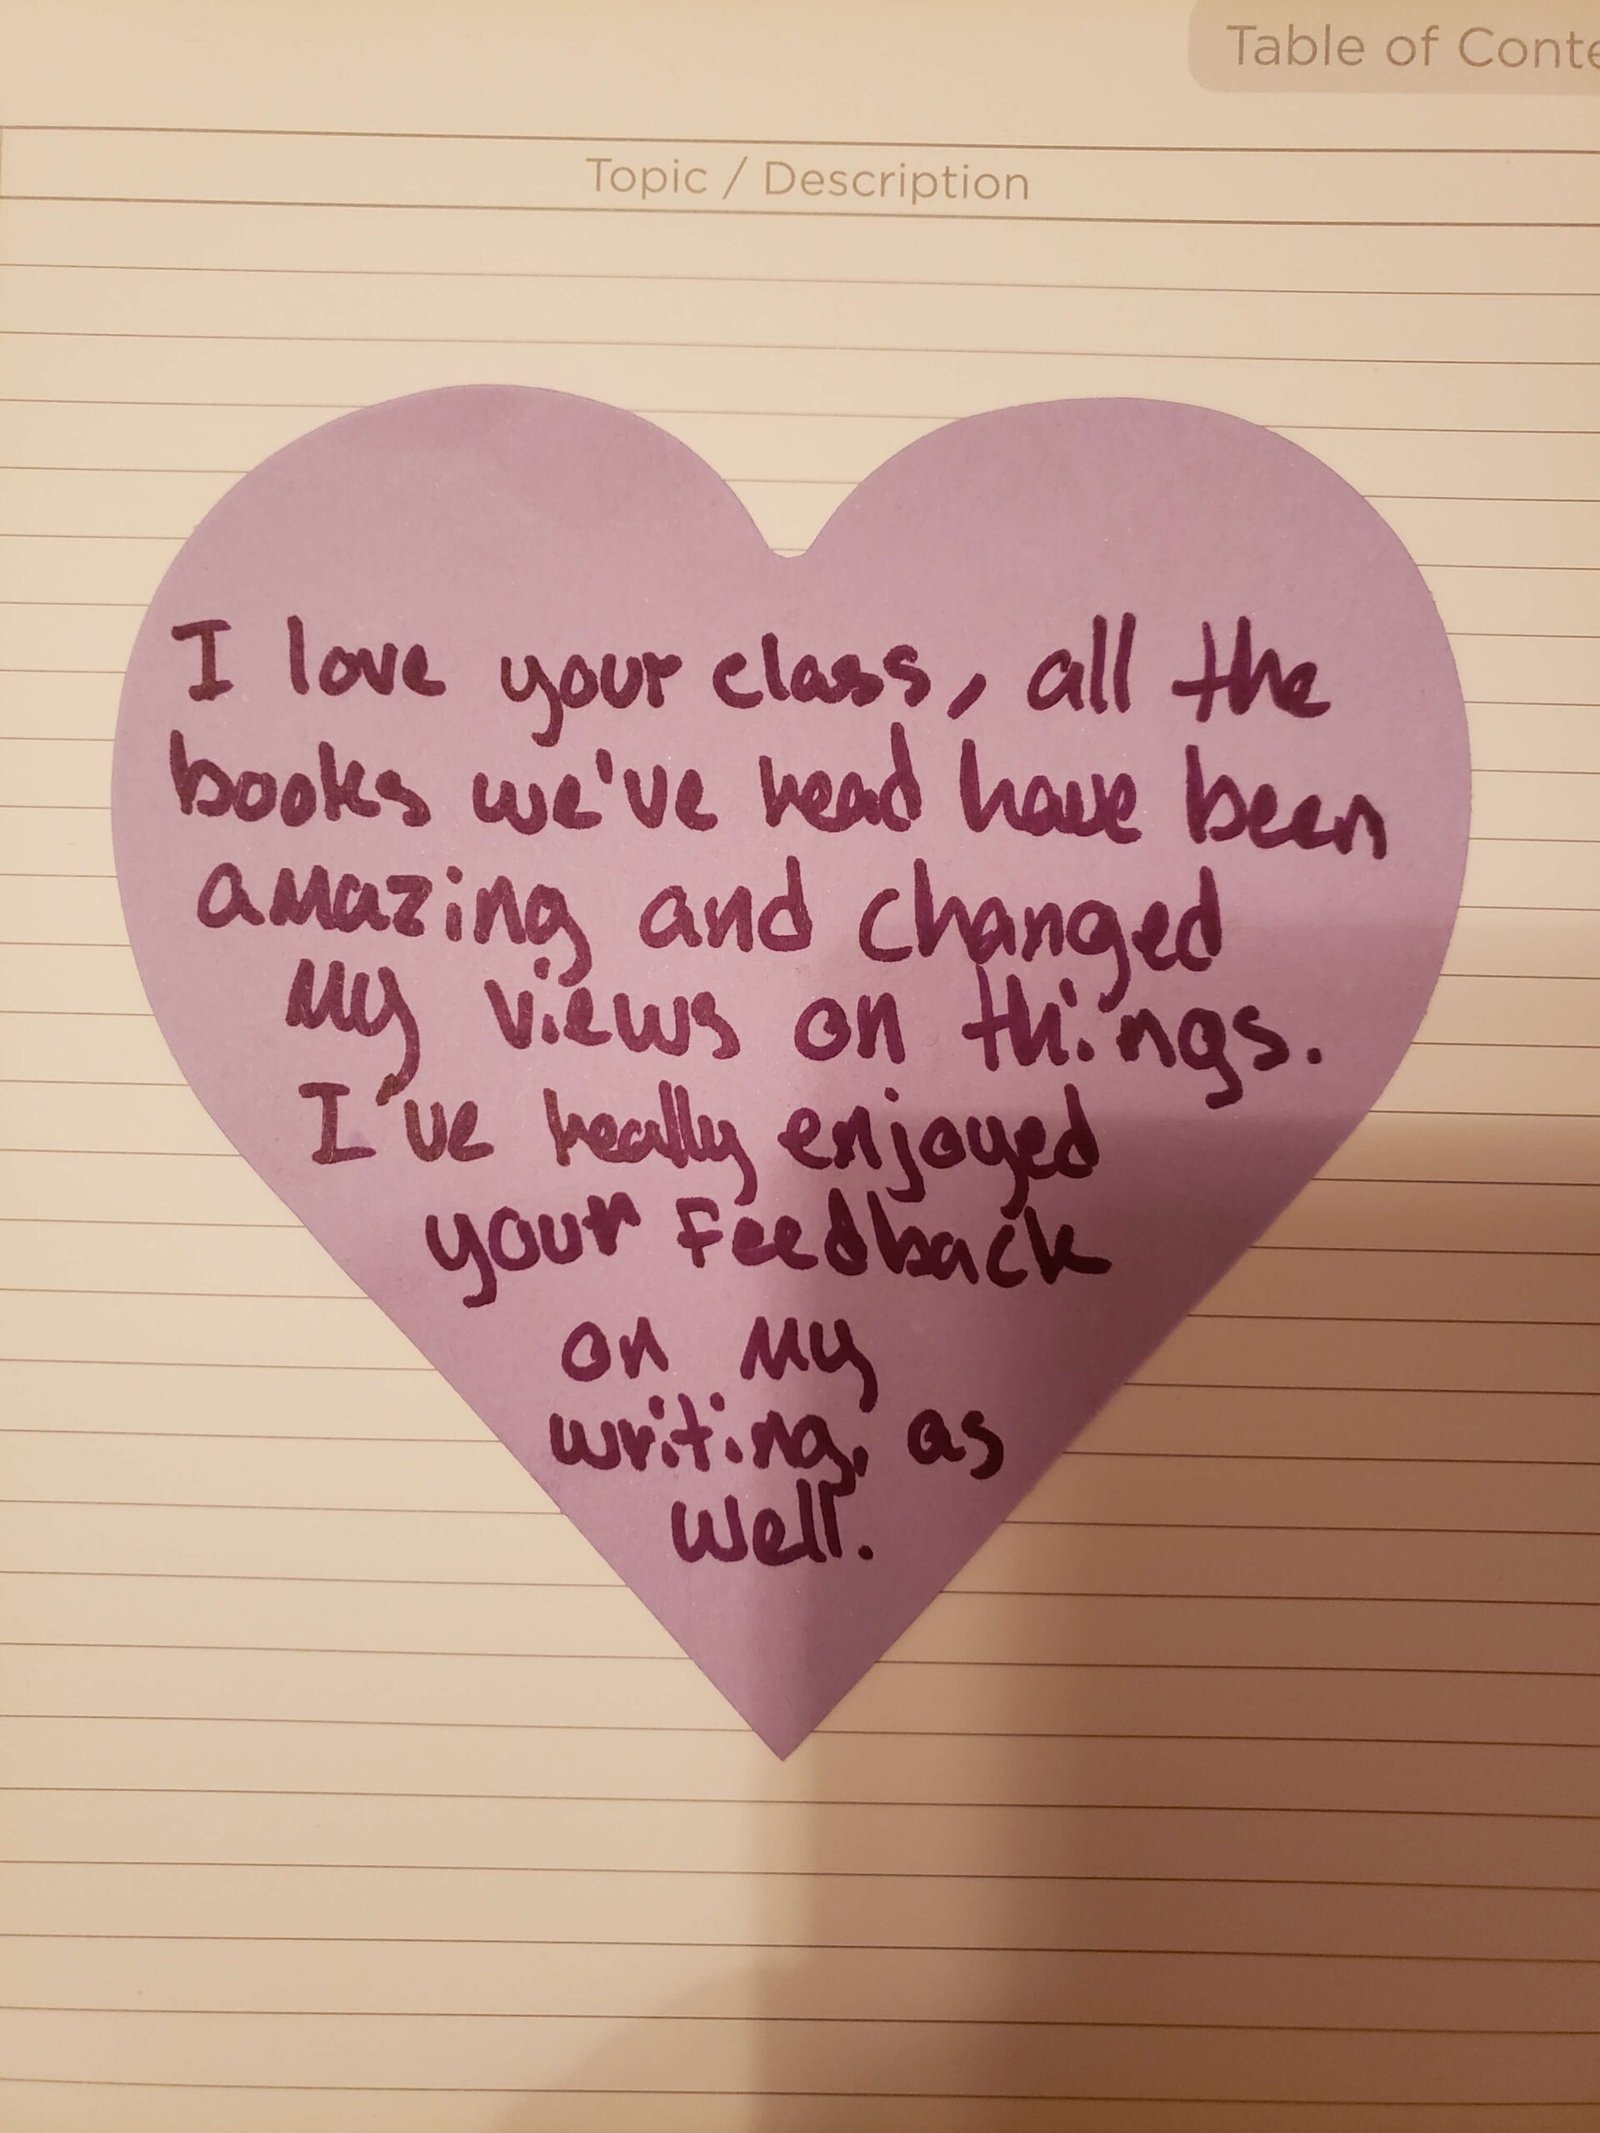 Table of Conte
Topic / Description
I love your class, all the
books we've read have been
amazing and changed
my views on things.
I've really enjoyed
your feedback
on my
writing, as
well.